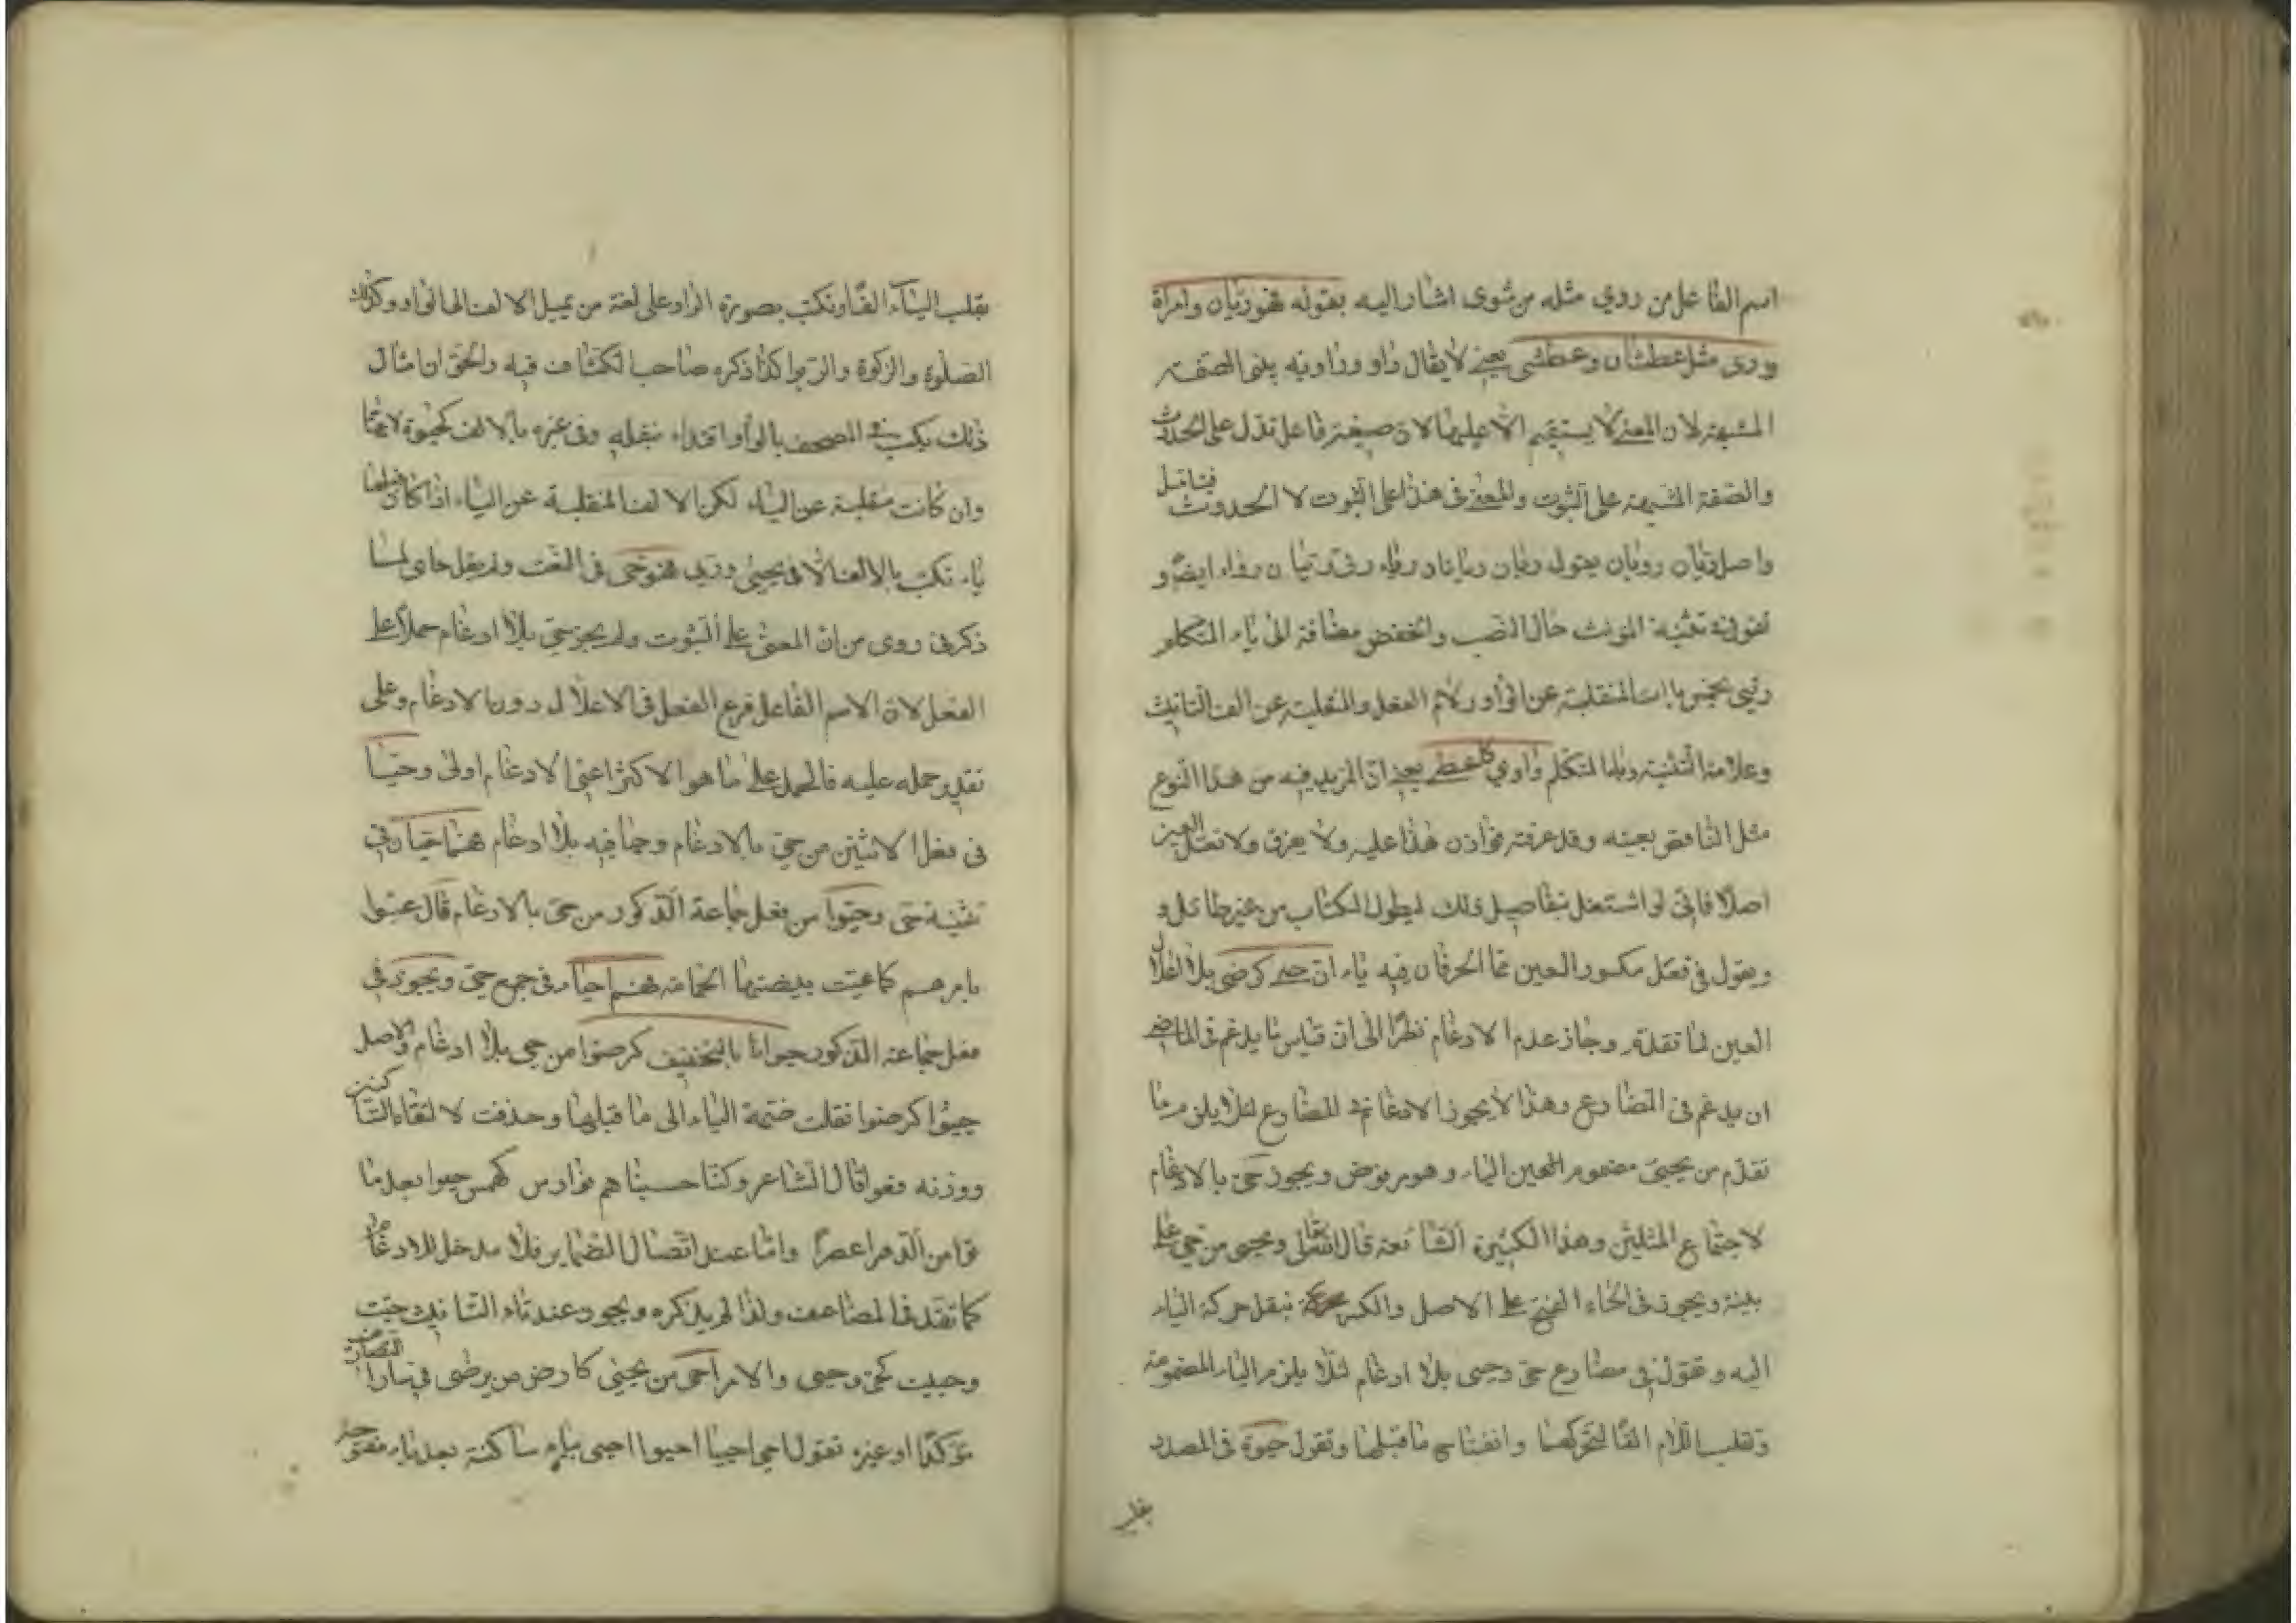 اسم الفاعل من روي مثله من شوى اشار اليه بقوله فهو ريان وامراة
وروى مثل عطشان وعطشى يعني لا يقال راو وراوية بلى الصفة
المشبهة لان المعنى لا يستقيم الا عليها لان صيغة فاعل تدل على الحدوث
والصفة المشبهة على الثبوت والمعنى في هذا على الثبوت لا الحدوث فيتامل
واصل ريان رويان يقول ريان ريانان رواء ريا رييان رواء ايضا و
تقول في تثنية المونث حال النصب والخفض مضافة الى ياء المتكلم
رييي بخمس ياات المنقلبة عن الواو ولام الفعل والمنقلبة عن الف التانيث
وعلامة التثنية وياء المتكلم واروي كاعطي يعني ان المزيد فيه من هذا النوع
مثل الناقص بعينه وقد عرفته فوازن هذا عليه ولا يعرق ولا تعل العين
اصلا فانى لو اشتغل بتفاصيل ذلك ليطول الكتاب من غير طائل و
ويقول في فعل مكسور العين مما الحرفان فيه ياء ان حيي كرضي بلا اعلال
العين لما تقدم وجاز عدم الادغام نظرا الى ان قياس ما يدغم في الماضي
ان يدغم في المضارع وهذا لا يجوز الادغام في المضارع لئلا يلزم ما
تقدم من يحيي مضموم العين الياء وهو مرفوض ويجوز حي بالادغام
لاجتماع المثلين وهذا الكثير الشائعة قال الله تعالى ويحيى من حي على
بينة ويجوز في الحاء الفتح على الاصل والكسر بنقل حركة الياء
اليه وتقول في مضارع حي وحيي بلا ادغام لئلا يلزم الياء المضمومة
وتقلب اللام الفا لتحركها وانفتاح ما قبلها وتقول حيوة في المصدر
بقلب
بقلب الياء الفا وتكتب بصورة الواو على لغة من يميل الالف الى الواو وكذلك
الصلوة والزكوة والربوا كذا ذكره صاحب الكشاف فيه والحق ان مثال
ذلك يكتب في المصحف بالواو اقتداء بنقله وفي غيره بالالف كحيوة لانها
وان كانت منقلبة عن الياء لكن الالف المنقلبة عن الياء اذا كان قبلها
ياء تكتب بالالف الا في يحيى وريى فهو حي في النعت ولم يقل حاي لما
ذكر في روى من ان المعنى على الثبوت ولم يجز حيي بلا ادغام حملا على
الفعل لان الاسم الفاعل فرع الفعل في الاعلال دون الادغام وعلى
تقدير حمله عليه فالحمل على ما هو الاكثر اعني الادغام اولى وحيا
في فعل الاثنين من حي بالادغام وحييا فيه بلا ادغام فهما حيان في
تثنية حي وحيوا من فعل جماعة الذكور من حي بالادغام قال عيوا
بامرهم كما عيت ببيضتها الحمامة فهم احياء في جمع حي ويجوز في
فعل جماعة الذكور حيوا بالتخفيف كرضوا من حيي بلا ادغام والاصل
حييوا كرضيوا نقلت ضمة الياء الى ما قبلها وحذفت لالتقاء الساكنين
ووزنه فعوا قال الشاعر وكنا حسبناهم فوارس كهمس حيوا بعد ما
ماتوا من الدهر اعصرا واما عند اتصال الضماير فلا مدخل للادغام
كما تقدم في المضاعف ولذا لم يذكره ويجوز عند تاء التانيث حيت
وحييت كحي وحيي والامر احي من يحيي كارض من يرضى في سائر التصاريف
مؤكدا او غيره تقول احي احييا احيوا احيي بياء ساكنة بعد ياء مفتوحة